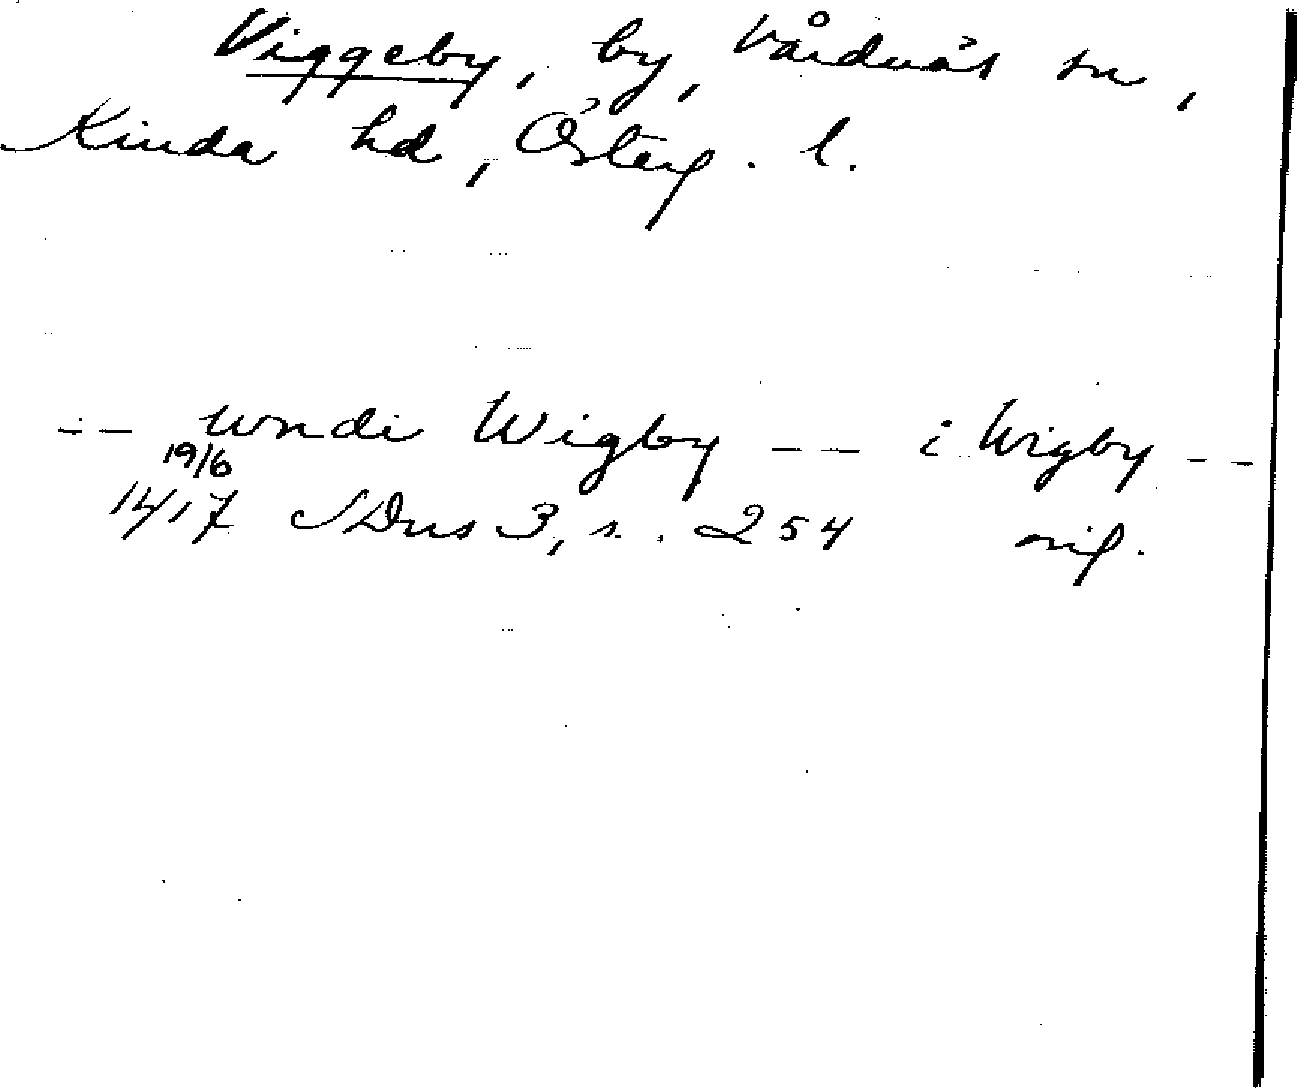 Viggeby, by, Vårdnäs sn,
Kinda hd, Österg. l.
-- wndi Wigby -- i Wigby --
19/6
1417 SDns 3, s. 254 orig.